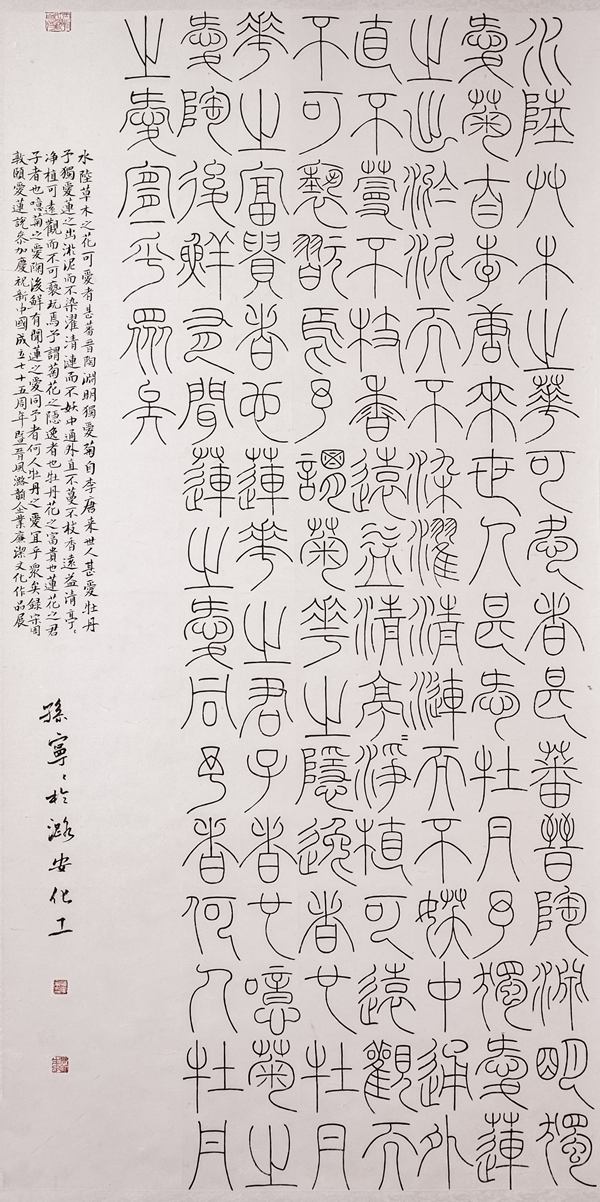 水陸艸木之華可愛者甚蕃晉陶淵明獨
愛菊自李唐來世人甚愛牡丹予獨愛蓮
之出淤泥而不染濯清漣而不妖中通外
直不蔓不枝香遠益清亭〻淨植可遠觀而
不可褻翫焉予謂菊華之隱逸者也牡丹
華之富貴者也蓮華之君子者也噫菊之
愛陶後鮮有聞蓮之愛同予者何人牡丹
之愛宜乎眾矣
水陸草木之花可愛者甚蕃晉陶淵明獨愛菊自李唐来世人甚愛牡丹
予獨愛蓮之出淤泥而不染濯清漣而不妖中通外直不蔓不枝香遠益清亭〻
净植可遠觀而不可褻玩焉予謂菊花之隱逸者也牡丹花之富貴也蓮花之君
子者也噫菊之愛陶後鮮有聞蓮之愛同予者何人牡丹之愛宜乎衆矣録宋周
敦頤愛蓮說参加慶祝新中國成立七十五周年暨晉風潞韻企業廉潔文化作品展
孫寧〻於潞安化工